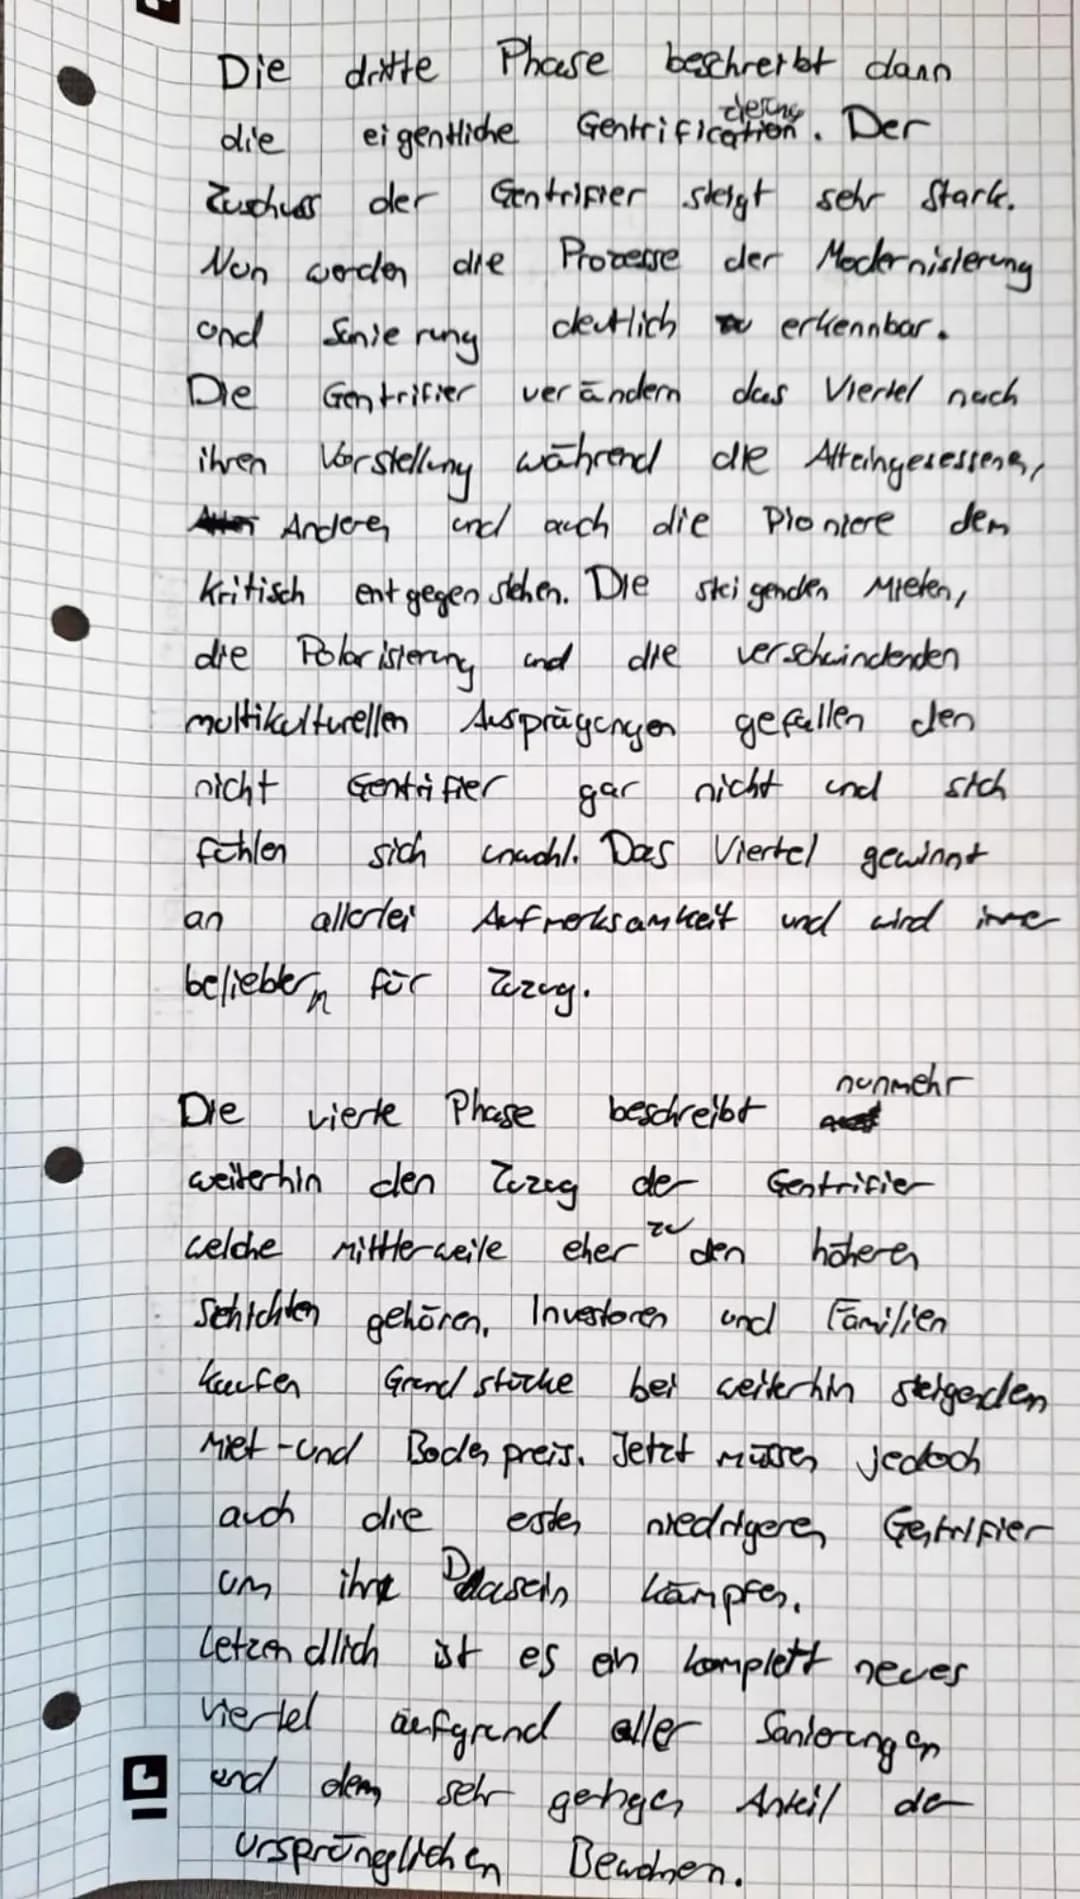 Die dritte Phase beschreibt dann
die eigentliche Gentrification. Der
Zuschuss der Gentrifier steigt sehr Stark.
Nun werden die Prozesse der Modernisierung
und Sanierung deutlich erkennbar.
Die Gentrifier verändern das Viertel nach
ihren Vorstellung während die Alteingesessenen,
Andere, und auch die Pioniere dem
kritisch entgegen stehen. Die steigenden Mieten,
die Polarisierung und die verschwindenden
multikulturellen Ausprägungen gefallen den
nicht Gentrifier gar nicht und sich
fühlen sich unwohl. Das Viertel gewinnt
an allerlei Aufmerksamkeit und wird immer
beliebtern für Zuzug.
Die vierte Phase beschreibt nunmehr
weiterhin den Zuzug der Gentrifier
welche mittlerweile eher zu den höheren
Schichten gehören. Investoren und Familien
kaufen Grundstücke bei weiterhin steigenden
Miet-und Boden preis. Jetzt müssen jedoch
auch die ersten niedrigeren Gentrifier
um ihre Dasein kämpfen.
Letzendlich ist es ein komplett neues
viertel aufgrund aller Sanierungen
und dem sehr geringen Anteil der
ursprünglichen Bewohnen.